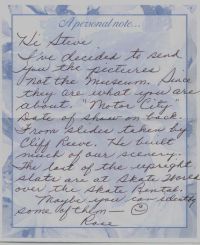 A personal note...
Hi Steve
I've decided to send
you the pictures,
not the Museum. Since
they are what you are
about. "Motor City"
Date of show on back.
From slides taken by
Cliff Reeve. He built
much of our scenery.
The last of the upright
slats are at Skate World
over the Skate Rental.
Maybe you can identify
some of them—
Rose